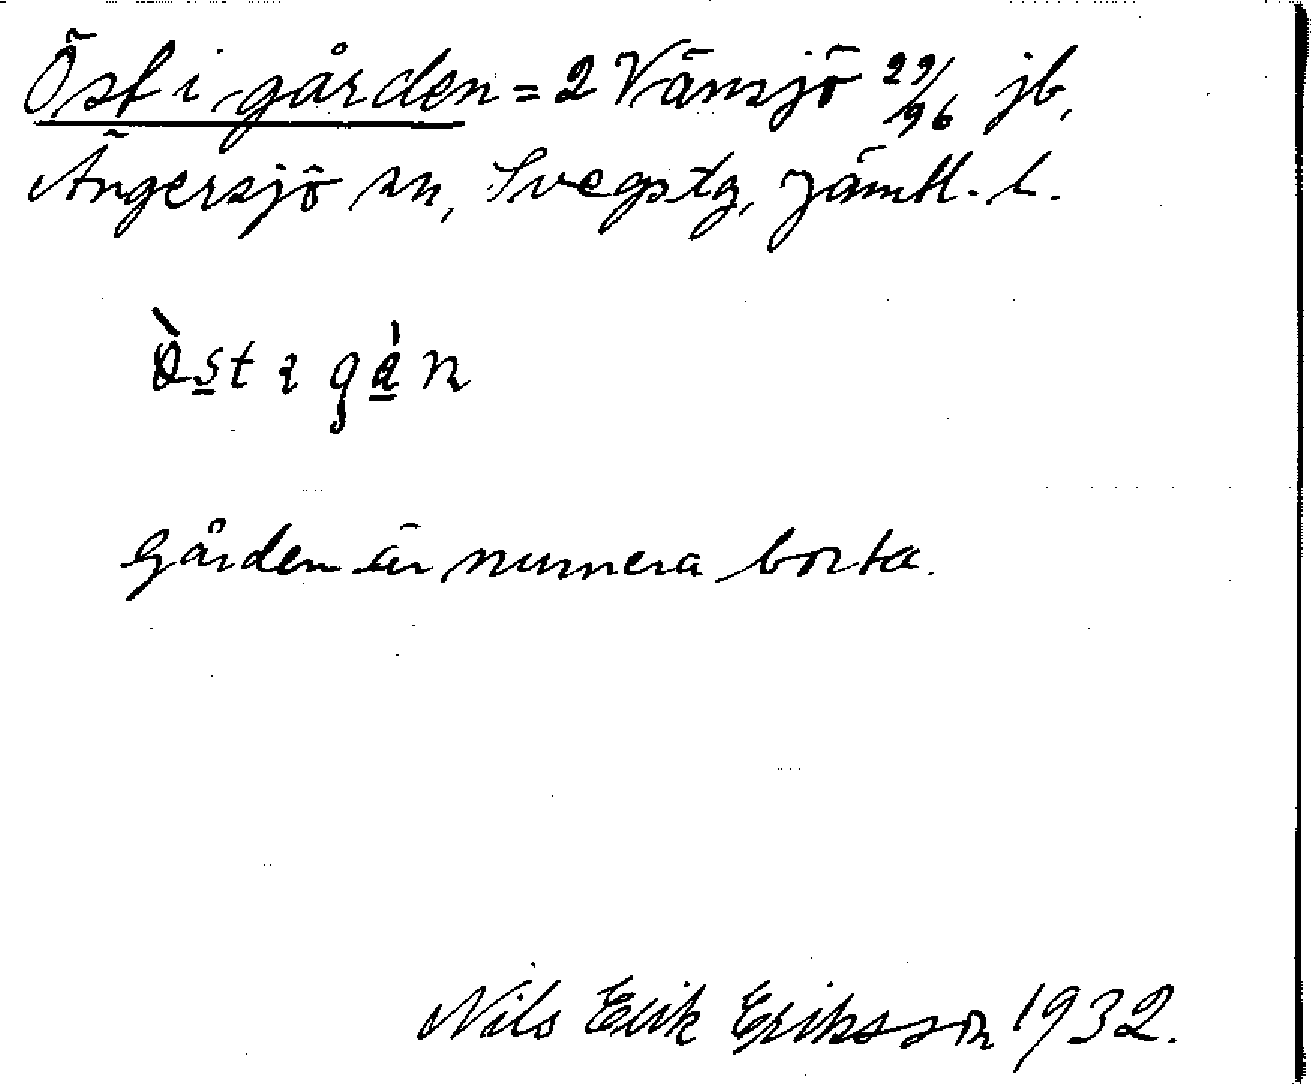 Öst i gården = 2 Vänsjö 29/96 jb,
Ängersjö sn, Svegs tg, Jämtl. l.
Ö̀st ı gá̱n
Gården är numera borta.
Nils Erik Eriksson 1932.